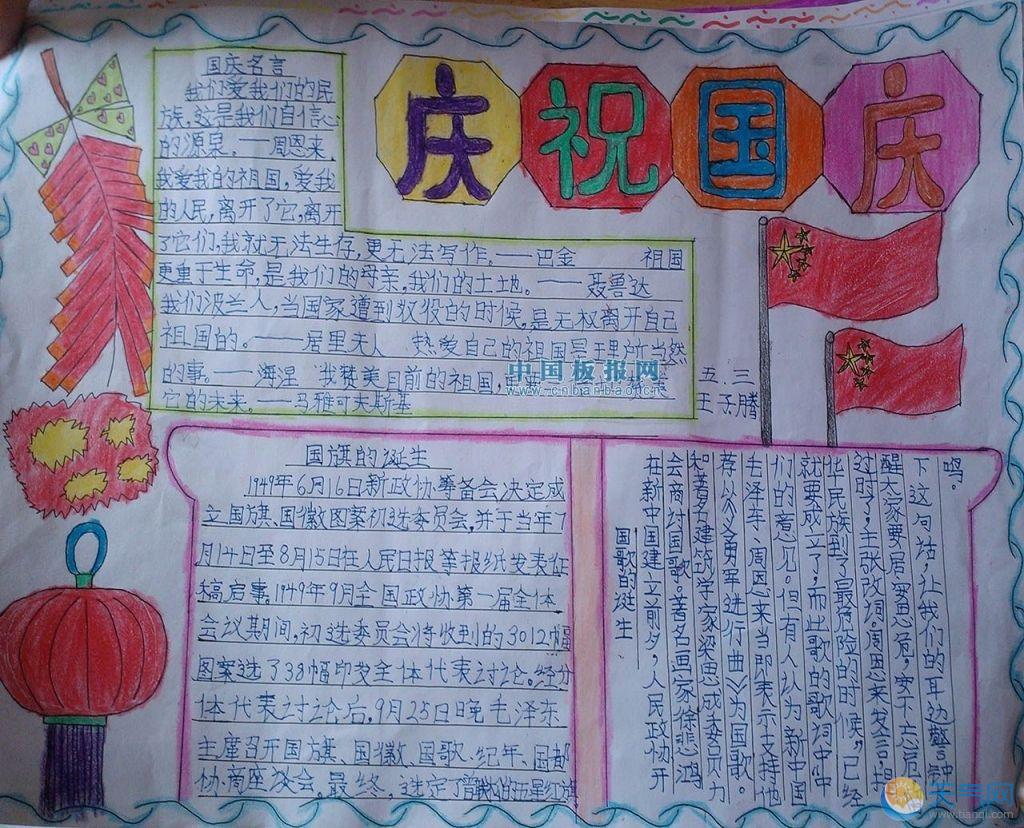 庆祝国庆
国庆名言
我们爱我们的民
族,这是我们自信心
的源泉。——周恩来
我爱我的祖国,爱我
的人民,离开了它,离开
了它们,我就无法生存,更无法写作。——巴金 祖国
更重于生命,是我们的母亲,我们的土地。——聂鲁达
我们波兰人,当国家遭到奴役的时候,是无权离开自己
祖国的。——居里夫人 热爱自己的祖国是理所当然
的事。——海涅 我赞美目前的祖国,
它的未来。——马雅可夫斯基
中国板报网
www.cnbanbao.cn
五.三
王子腾
国旗的诞生
1949年6月16日新政协筹备会决定成
立国旗、国徽图案初选委员会,并于当年7
月14日至8月15日在人民日报等报纸发表征
稿启事。1949年9月全国政协第一届全体
会议期间,初选委员会将收到的3012幅
图案选了38幅印发全体代表讨论。经分
体代表讨论后,9月25日晚毛泽东
主席召开国旗、国徽、国歌、纪年、国都
协商座谈会。最终,选定了的五星红旗
国歌的诞生
在新中国建立前夕,人民政协开
会商讨国歌。著名画家徐悲鸿
和著名建筑学家梁思成委员力
荐以《义勇军进行曲》为国歌。
毛泽东、周恩来当即表示支持他
们的意见。但有人认为新中国
就要成立了,而此歌的歌词中“中
华民族到了最危险的时候”已经
过时了,主张改词。周恩来发言,提
醒大家要居安思危,安不忘危。留
下这句话,让我们的耳边警钟
鸣。
天气网
www.tianqi.com